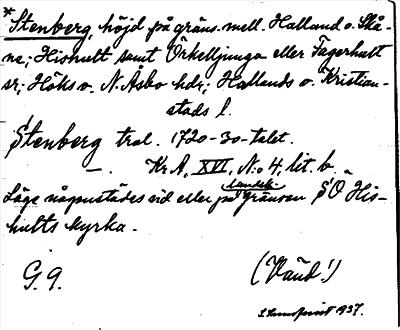 *Stenberg, höjd på gräns. mell. Halland o. Skå-
ne; Hishult samt Örkelljunga eller Fagerhult
sr; Höks o. N. Åsbo hdr; Hallands o. Kristian-
stads l.
Stenberg tral. 1720-30-talet.
—. Kr. A, XVI, No 4, lit. b.
Låge någonstädes vid eller på landsk. gränsen S O His-
hults kyrka.
G. 9.
(Vänd!)
1937.